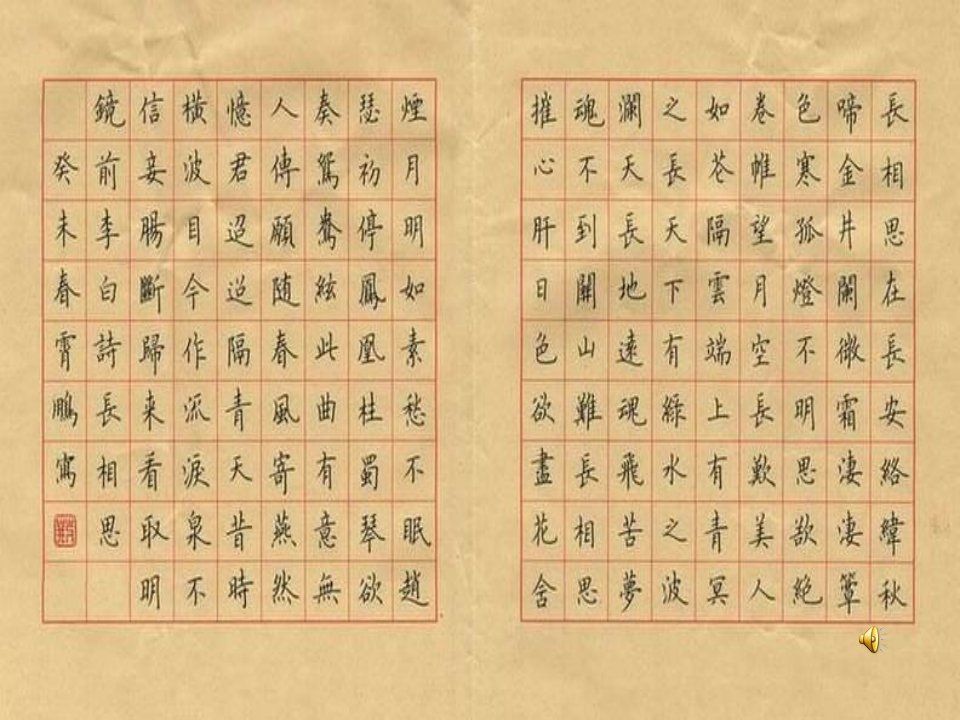 長相思在長安絡緯秋
啼金井闌微霜淒淒簟
色寒孤燈不明思欲絕
卷帷望月空長歎美人
如花隔雲端上有青冥
之長天下有綠水之波
瀾天長地遠魂飛苦夢
魂不到關山難長相思
摧心肝日色欲盡花含
煙月明如素愁不眠趙
瑟初停鳳凰柱蜀琴欲
奏鴛鴦絃此曲有意無
人傳願随春風寄燕然
憶君迢迢隔青天昔時
橫波目今作流淚泉不
信妾腸斷歸来看取明
鏡前李白詩長相思
癸未春霄鵬寫